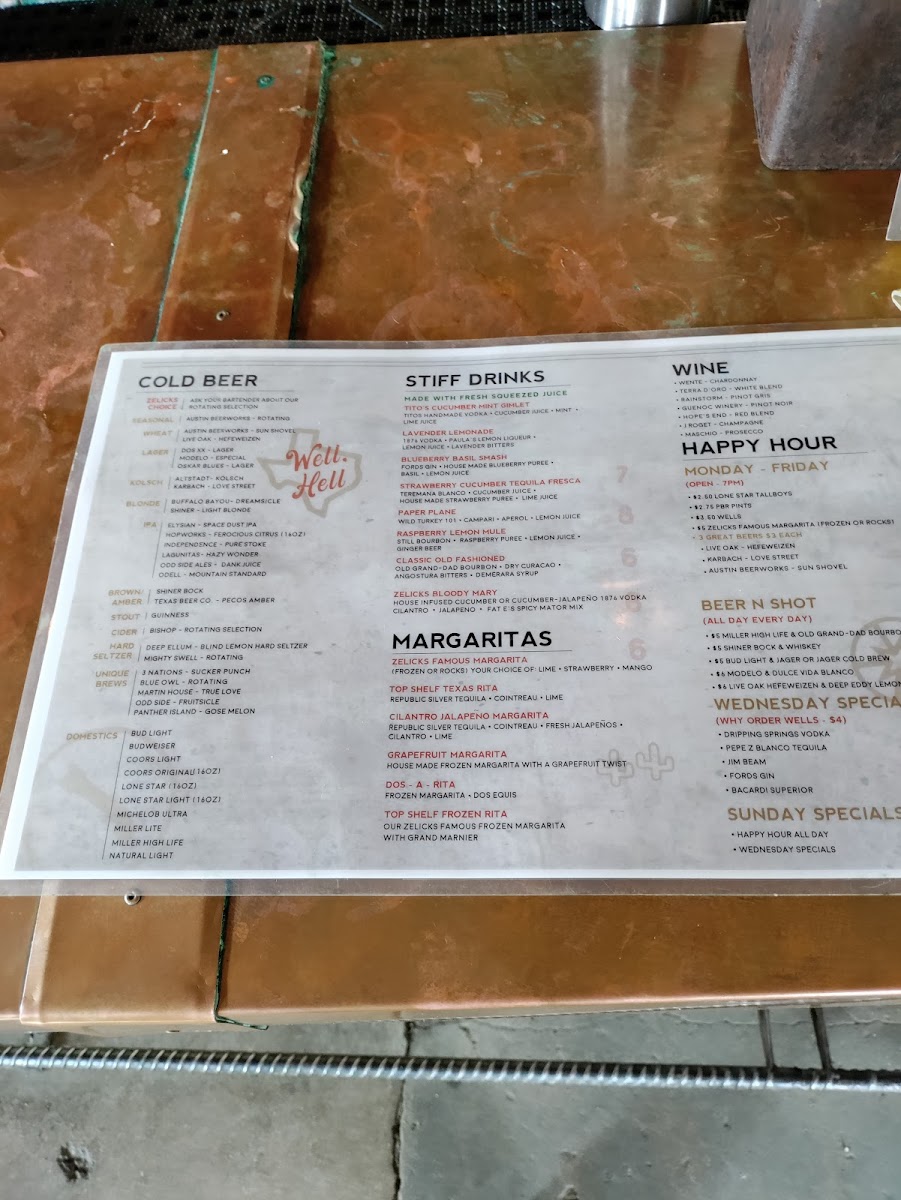 COLD BEER
ZELICKS CHOICE | ASK YOUR BARTENDER ABOUT OUR
ROTATING SELECTION
SEASONAL | AUSTIN BEERWORKS - ROTATING
WHEAT | AUSTIN BEERWORKS - SUN SHOVEL
LIVE OAK - HEFEWEIZEN
LAGER | DOS XX - LAGER
MODELO - ESPECIAL
OSKAR BLUES - LAGER
KOLSCH | ALTSTADT- KOLSCH
KARBACH - LOVE STREET
BLONDE | BUFFALO BAYOU- DREAMSICLE
SHINER - LIGHT BLONDE
IPA | ELYSIAN - SPACE DUST IPA
HOPWORKS - FEROCIOUS CITRUS (16OZ)
INDEPENDENCE - PURE STOKE
LAGUNITAS- HAZY WONDER
ODD SIDE ALES - DANK JUICE
ODELL - MOUNTAIN STANDARD
BROWN/
AMBER | SHINER BOCK
TEXAS BEER CO. - PECOS AMBER
STOUT | GUINNESS
CIDER | BISHOP - ROTATING SELECTION
HARD
SELTZER | DEEP ELLUM - BLIND LEMON HARD SELTZER
MIGHTY SWELL - ROTATING
UNIQUE
BREWS | 3 NATIONS - SUCKER PUNCH
BLUE OWL - ROTATING
MARTIN HOUSE - TRUE LOVE
ODD SIDE - FRUITSICLE
PANTHER ISLAND - GOSE MELON
DOMESTICS | BUD LIGHT
BUDWEISER
COORS LIGHT
COORS ORIGINAL(16OZ)
LONE STAR (16OZ)
LONE STAR LIGHT (16OZ)
MICHELOB ULTRA
MILLER LITE
MILLER HIGH LIFE
NATURAL LIGHT
Well.
Hell
STIFF DRINKS
MADE WITH FRESH SQUEEZED JUICE
TITO'S CUCUMBER MINT GIMLET
TITOS HANDMADE VODKA • CUCUMBER JUICE • MINT •
LIME JUICE
LAVENDER LEMONADE
1876 VODKA • PAULA'S LEMON LIQUEUR •
LEMON JUICE • LAVENDER BITTERS
BLUEBERRY BASIL SMASH
FORDS GIN • HOUSE MADE BLUEBERRY PUREE •
BASIL • LEMON JUICE
7
STRAWBERRY CUCUMBER TEQUILA FRESCA
TEREMANA BLANCO • CUCUMBER JUICE •
HOUSE MADE STRAWBERRY PUREE • LIME JUICE
PAPER PLANE
WILD TURKEY 101 • CAMPARI • APEROL • LEMON JUICE
8
RASPBERRY LEMON MULE
STILL BOURBON • RASPBERRY PUREE • LEMON JUICE •
GINGER BEER
CLASSIC OLD FASHIONED
OLD GRAND-DAD BOURBON • DRY CURACAO •
ANGOSTURA BITTERS • DEMERARA SYRUP
6
ZELICKS BLOODY MARY
HOUSE INFUSED CUCUMBER OR CUCUMBER-JALAPEÑO 1876 VODKA
CILANTRO • JALAPEÑO • FAT E'S SPICY MATOR MIX
MARGARITAS
6
ZELICKS FAMOUS MARGARITA
(FROZEN OR ROCKS) YOUR CHOICE OF: LIME • STRAWBERRY • MANGO
TOP SHELF TEXAS RITA
REPUBLIC SILVER TEQUILA • COINTREAU • LIME
CILANTRO JALAPEÑO MARGARITA
REPUBLIC SILVER TEQUILA • COINTREAU • FRESH JALAPEÑOS •
CILANTRO • LIME
GRAPEFRUIT MARGARITA
HOUSE MADE FROZEN MARGARITA WITH A GRAPEFRUIT TWIST
DOS - A - RITA
FROZEN MARGARITA + DOS EQUIS
TOP SHELF FROZEN RITA
OUR ZELICKS FAMOUS FROZEN MARGARITA
WITH GRAND MARNIER
WINE
• WENTE - CHARDONNAY
• TERRA D'ORO - WHITE BLEND
• RAINSTORM - PINOT GRIS
• GUENOC WINERY - PINOT NOIR
• HOPE'S END - RED BLEND
• J ROGET - CHAMPAGNE
• MASCHIO - PROSECCO
HAPPY HOUR
MONDAY - FRIDAY
(OPEN - 7PM)
• $2.50 LONE STAR TALLBOYS
• $2.75 PBR PINTS
• $3.50 WELLS
• $5 ZELICKS FAMOUS MARGARITA (FROZEN OR ROCKS)
- 3 GREAT BEERS $3 EACH
• LIVE OAK - HEFEWEIZEN
• KARBACH - LOVE STREET
• AUSTIN BEERWORKS - SUN SHOVEL
BEER N SHOT
(ALL DAY EVERY DAY)
• $5 MILLER HIGH LIFE & OLD GRAND-DAD BOURBO
• $5 SHINER BOCK & WHISKEY
• $5 BUD LIGHT & JAGER OR JAGER COLD BREW
• $6 MODELO & DULCE VIDA BLANCO
• $6 LIVE OAK HEFEWEIZEN & DEEP EDDY LEMON
WEDNESDAY SPECIA
(WHY ORDER WELLS - $4)
• DRIPPING SPRINGS VODKA
• PEPE Z BLANCO TEQUILA
• JIM BEAM
• FORDS GIN
• BACARDI SUPERIOR
SUNDAY SPECIALS
• HAPPY HOUR ALL DAY
• WEDNESDAY SPECIALS